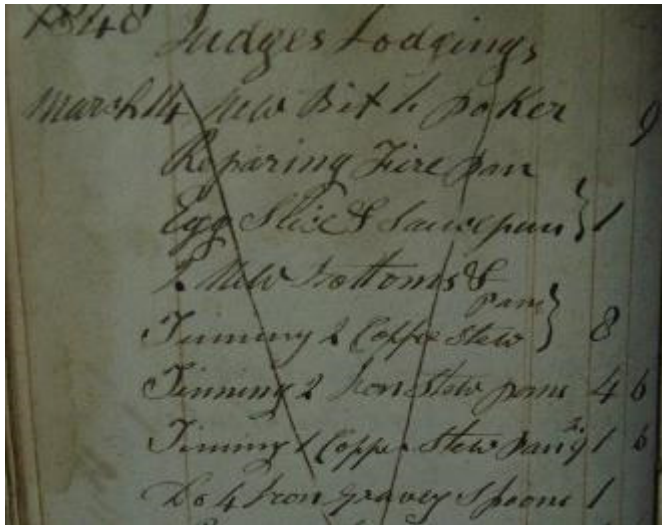 1848 Judges Lodgings
March 14 New Bit to poker 9
Repairing Fire pan
Egg Slice & Saucepan } 1
2 New Bottoms &
pans
Tinning 2 Copper Stew } 8
Tinning 2 Iron Stew pans 4 6
Tinning 1 Copper Stew pan 1 6
Do 4 Iron Gravey Spoons 1